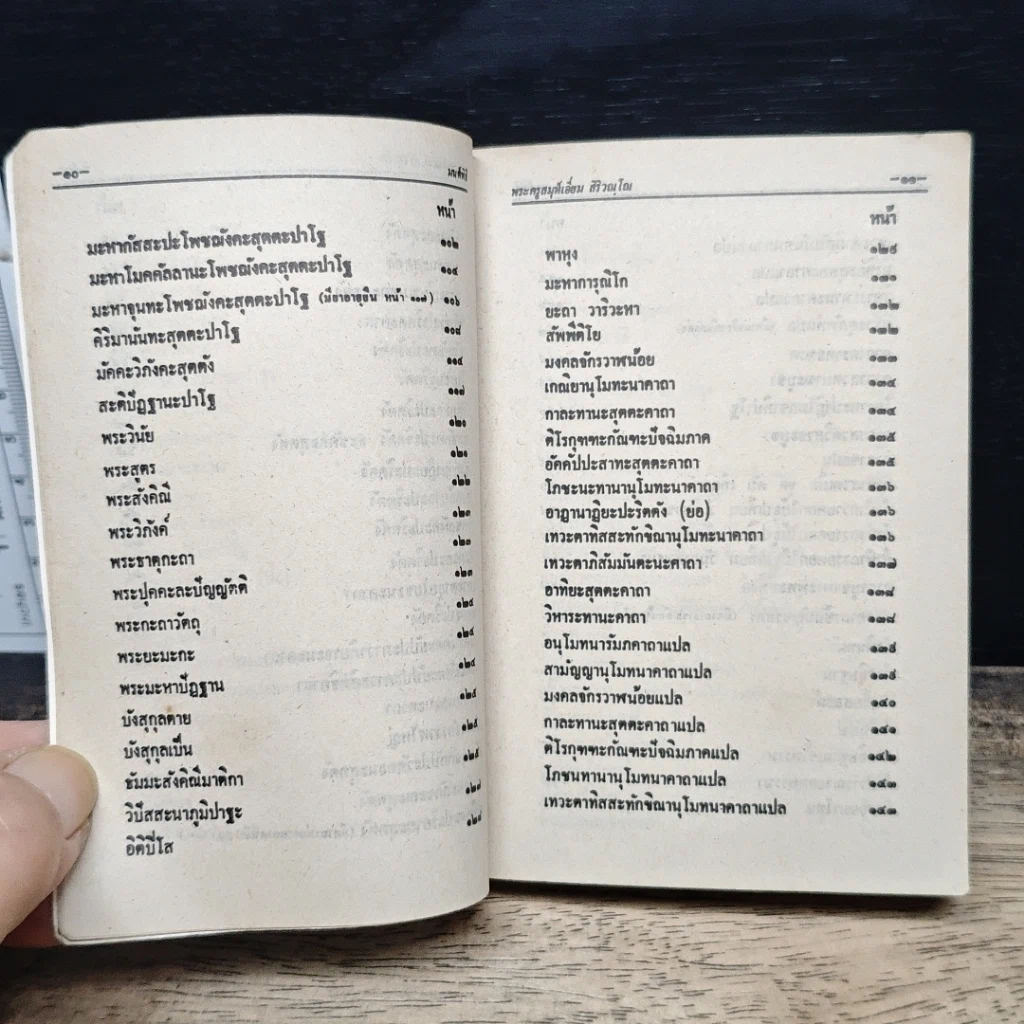 –๑๐–
มนต์พิธี
หน้า
มะหากัสสะปะโพชฌังคะสุตตะปาโฐ ๑๐๒
มะหาโมคคัลลานะโพชฌังคะสุตตะปาโฐ ๑๐๔
มะหาจุนทะโพชฌังคะสุตตะปาโฐ (มีย่าอาฮุยิน หน้า ๑๐๗) ๑๐๖
คิริมานันทะสุตตะปาโฐ ๑๐๘
มัคคะวิภังคะสุตตัง ๑๑๔
สะติปัฏฐานะปาโฐ ๑๑๗
พระวินัย ๑๒๐
พระสูตร ๑๒๑
พระสังคิณี ๑๒๒
พระวิภังค์ ๑๒๓
พระธาตุกะถา ๑๒๓
พระปุคคะละปัญญัตติ ๑๒๓
พระกะถาวัตถุ ๑๒๔
พระยะมะกะ ๑๒๔
พระมะหาปัฏฐาน ๑๒๔
บังสุกุลตาย ๑๒๕
บังสุกุลเป็น ๑๒๕
ธัมมะสังคิณีมาติกา ๑๒๕
วิปัสสะนาภูมิปาฐะ ๑๒๗
อิติปิโส ๑๒๘
พระครูสมุห์เอี่ยม สิริวณฺโณ
–๑๑–
หน้า
พาหุง ๑๒๙
มะหาการุณิโก ๑๓๑
ยะถา วาริวะหา ๑๓๒
สัพพีติโย ๑๓๒
มงคลจักรวาฬน้อย ๑๓๓
เกณิยานุโมทะนาคาถา ๑๓๔
กาละทานะสุตตะคาถา ๑๓๔
ติโรกุฑฑะกัณฑะปัจฉิมภาค ๑๓๕
อัคคัปปะสาทะสุตตะคาถา ๑๓๕
โภชะนะทานานุโมทะนาคาถา ๑๓๖
อาฏานาฏิยะปะริตตัง (ย่อ) ๑๓๖
เทวะตาทิสสะทักขิณานุโมทะนาคาถา ๑๓๖
เทวะตาภิสัมมันตะนะคาถา ๑๓๗
อาทิยะสุตตะคาถา ๑๓๘
วิหาระทานะคาถา ๑๓๘
อนุโมทนารัมภคาถาแปล ๑๓๙
สามัญญานุโมทนาคาถาแปล ๑๓๙
มงคลจักรวาฬน้อยแปล ๑๔๐
กาละทานะสุตตะคาถาแปล ๑๔๑
ติโรกุฑฑะกัณฑะปัจฉิมภาคแปล ๑๔๒
โภชนทานานุโมทนาคาถาแปล ๑๔๓
เทวะตาทิสสะทักขิณานุโมทนาคาถาแปล ๑๔๓